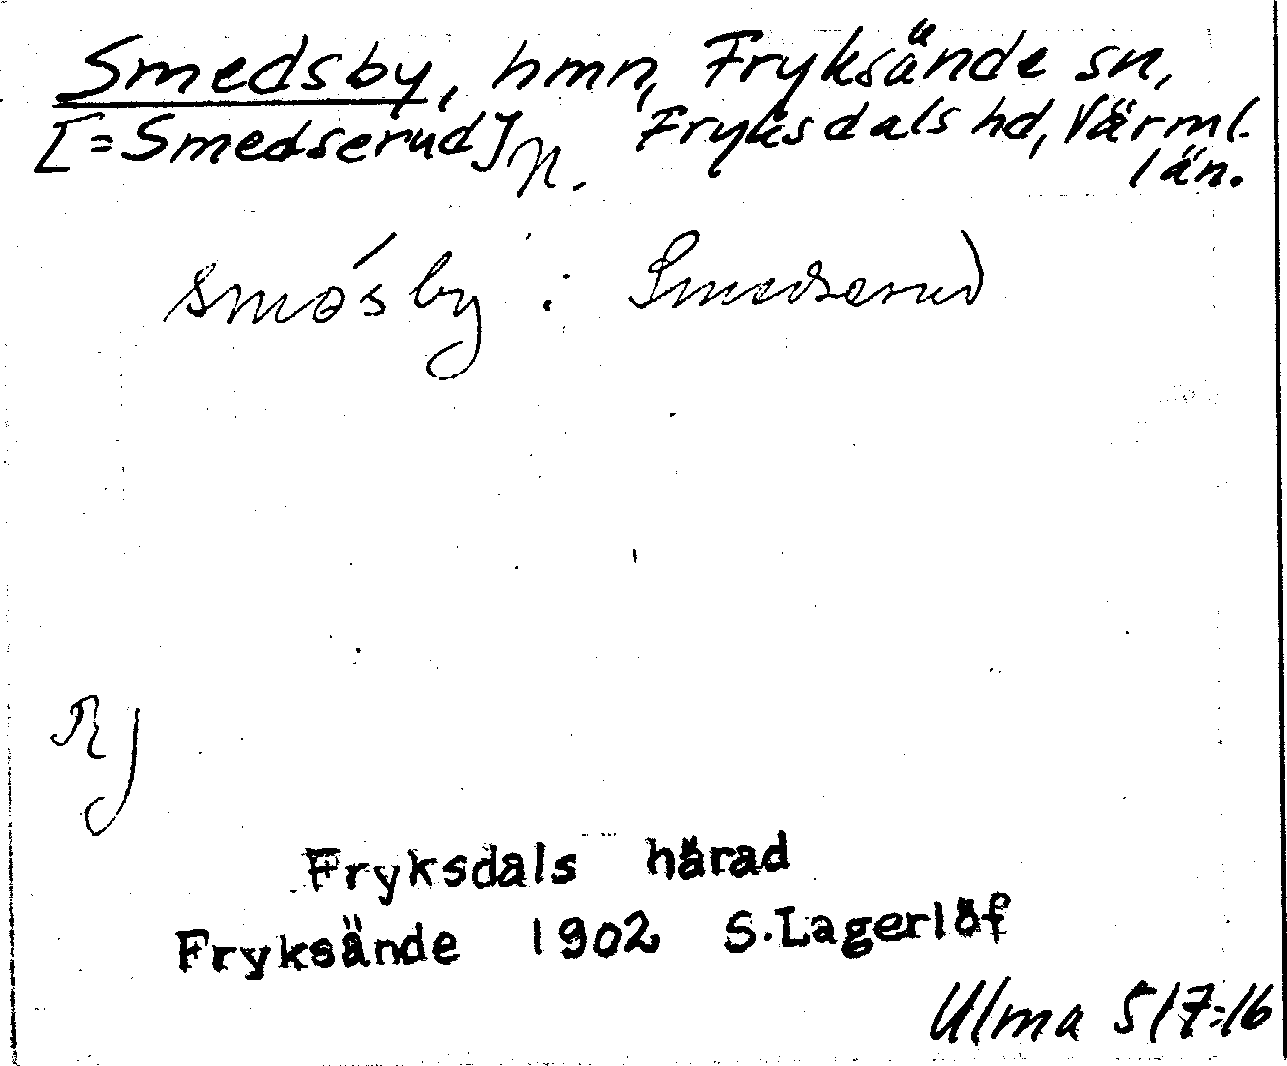 Smedsby, hmn, Fryksände sn,
[=Smedserud] n. Fryksdals hd, Värml.
län.
smo´sby : Smedserud
Rj
Fryksdals härad
Fryksände 1902 S.Lagerlöf
Ulma 517:16